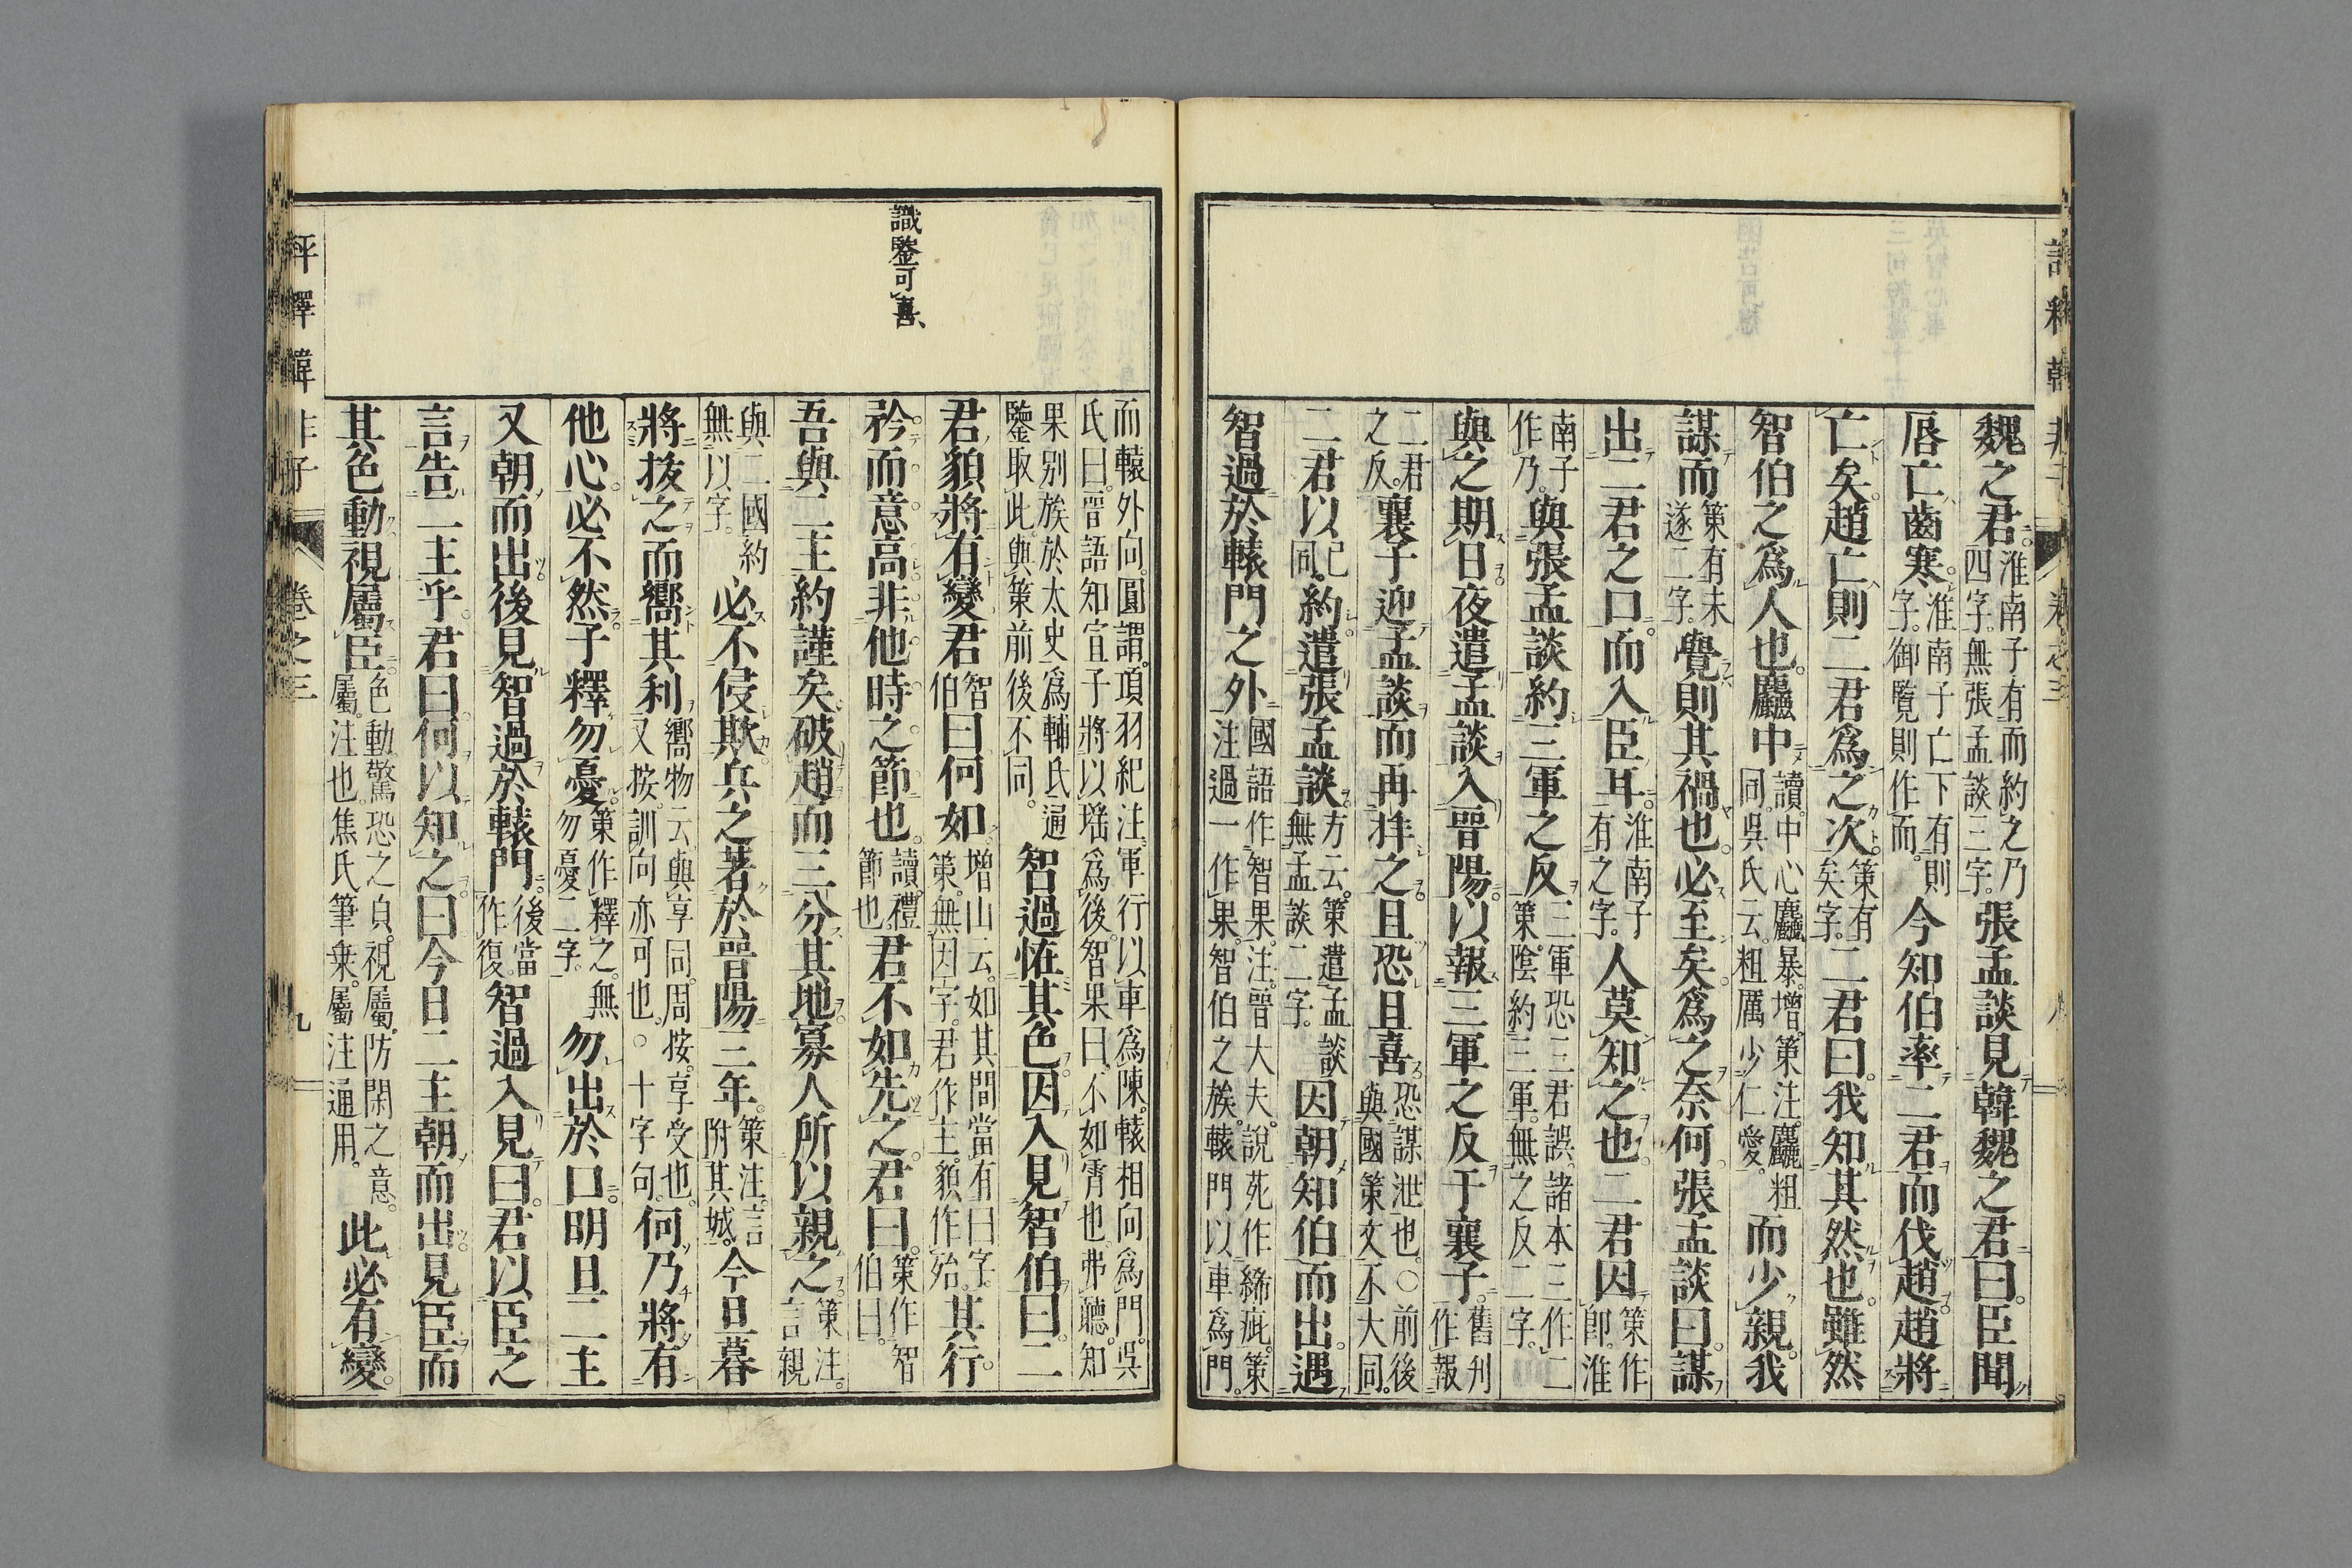 魏之君淮南子有而約之乃四字無張孟談三字張孟談見韓魏之君曰臣聞
唇亡齒寒淮南子亡下有則字御覧則作而今知伯率二君而伐趙趙將
亡矣趙亡則二君爲之次策有矣字二君曰我知其然也雖然
智伯之爲人也麤中讀中心麤暴增策注麤粗同呉氏云粗厲少仁愛而少親我
謀而策有未遂二字覺則其禍也必至矣爲之奈何張孟談曰謀
出二君之口而入臣耳淮南子有之字人莫知之也二君因策作卽淮
南子作乃與張孟談約三軍之反三軍恐三君誤諸本三作二策陰約三軍無之反二字
與之期日夜遣孟談入晉陽以報三軍之反于襄子舊刋作報
二君之反襄子迎孟談而再拜之且恐且喜恐謀泄也○前後與國策文不大同
二君以已同約遣張孟談方云策遣孟談無孟談二字因朝知伯而出遇
智過於轅門之外國語作智果注晉大夫說苑作絺疵策注過一作果智伯之族轅門以車爲門
而轅外向圓謂項羽紀注軍行以車爲陳轅相向爲門呉氏曰晉語知宣子將以瑶爲後智果曰不如霄也弗聽知
果别族於太史爲輔氏通鑒取此與策前後不同智過恠其色因入見智伯曰二
君貌將有變君智伯曰何如增山云如其間當有曰字策無因字君作主貌作殆其行
矜而意高非他時之節也讀禮節也君不如先之君曰策作智伯曰
吾與二主約謹矣破趙而三分其地寡人所以親之策注言親
與二國約無以字必不侵欺兵之著於晉陽三年策注言附其城今旦暮
將拔之而嚮其利嚮物云與享同周按享受也又按訓向亦可也○十字句何乃將有
他心必不然子釋勿憂策作釋之無勿憂二字勿出於口明旦二主
又朝而出後見智過於轅門後當作復智過入見曰君以臣之
言告二主乎君曰何以知之曰今日二主朝而出見臣而
其色動視屬臣色動驚恐之皃視屬防閑之意屬注也焦氏筆乗屬注通用此必有變
識鑒可喜
卷之三
九